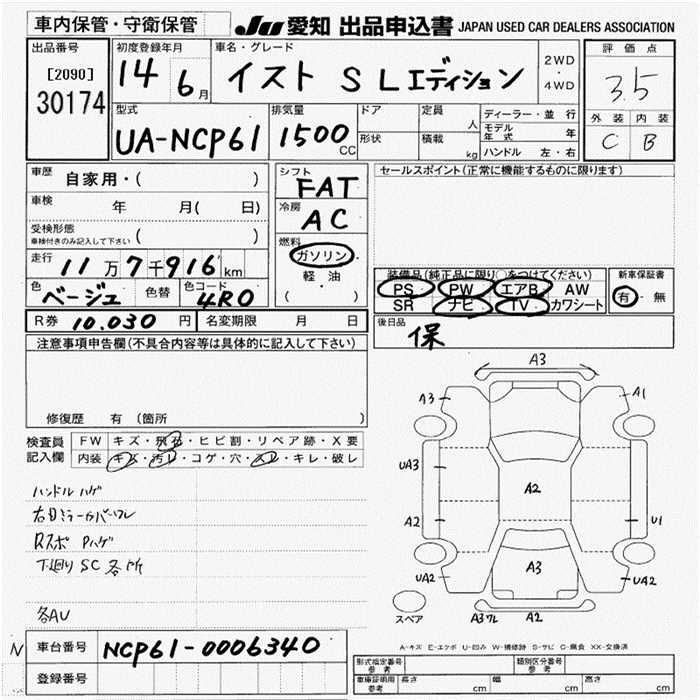 車内保管・守衛保管
JU 愛知 出品申込書 JAPAN USED CAR DEALERS ASSOCIATION
出品番号
[2090]
30174
初度登録年月
14 6月
車名・グレード
イスト S Lエディション
2WD
・
4WD
評価点
3.5
外装 内装
C B
型式
UA-NCP61
排気量
1500
CC
ドア
形状
定員 人
積載 kg
ディーラー・並行
モデル年式 年
ハンドル 左・右
車歴 自家用・( )
車検 年 月( 日)
受検形態
車検付きのみ記入して下さい ( )
走行 11万7千916km
色 ベージュ 色替 色コード 4R0
シフト
FAT
冷房
AC
燃料
ガソリン
軽油
( )
セールスポイント(正常に機能するものに限ります)
装備品(純正品に限り○をつけてください)
PS PW エアB AW
SR ナビ TV カワシート
新車保証書
有・無
R券 10.030円 名変期限 月 日
後日品
保
注意事項申告欄(不具合内容等は具体的に記入して下さい)
修復歴 有 (箇所 )
検査員
記入欄
FW キズ・飛石・ヒビ割・リペア跡・X要
内装 キズ・汚レ・コゲ・穴・スレ・キレ・破レ
ハンドルハゲ
右Dミラーカバーワレ
Rスポ Pハゲ
下廻りSC各所
各AU
A3
A3 A1
UA3
A2
A2 U1
UA2 A3 UA2
スペア A3ワレ A2
A-キズ E-エクボ U-凹み W-補修跡 S-サビ C-腐食 XX-交換済
N 車台番号 NCP61-0006340
登録番号
形式指定番号
参考
類別区分番号
参考
車庫証明用
参考
長さ cm 幅 cm 高さ cm